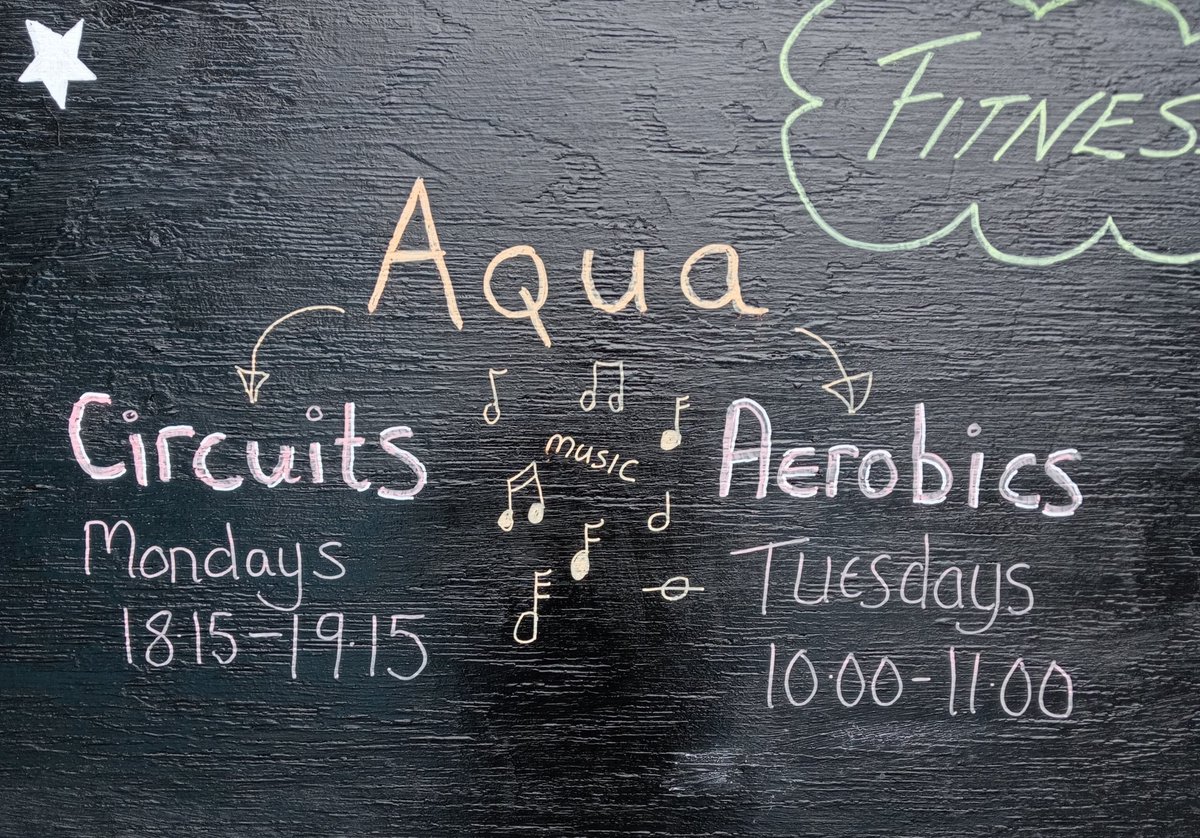 FITNESS
Aqua
Circuits
Mondays
18.15-19.15
music
Aerobics
Tuesdays
10.00-11.00